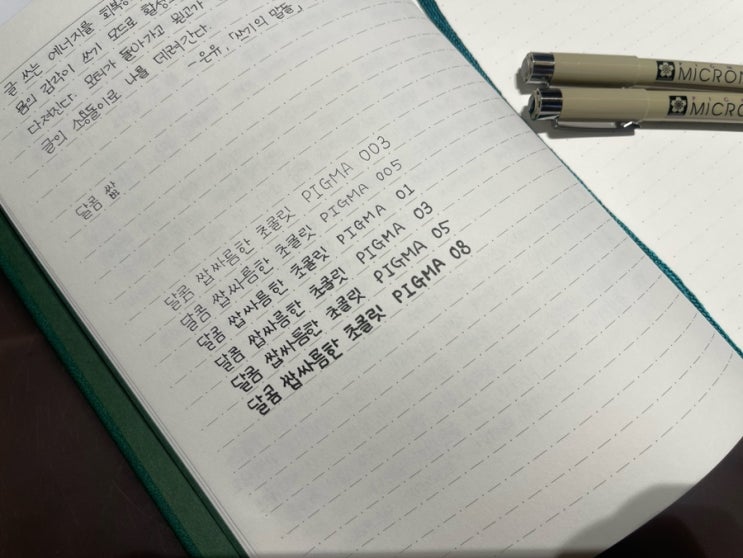 글 쓰는 에너지를 회복하
몸의 감각이 쓰기 모드로 활성
다져진다. 모터가 돌아가고 원고가
글의 소용돌이로 나를 데려간다.
-은유, 「쓰기의 말들」
달콤 쌉
달콤 쌉싸름한 초콜릿 PIGMA 003
달콤 쌉싸름한 초콜릿 PIGMA 005
달콤 쌉싸름한 초콜릿 PIGMA 01
달콤 쌉싸름한 초콜릿 PIGMA 03
달콤 쌉싸름한 초콜릿 PIGMA 05
달콤 쌉싸름한 초콜릿 PIGMA 08
MICRON
MICRO